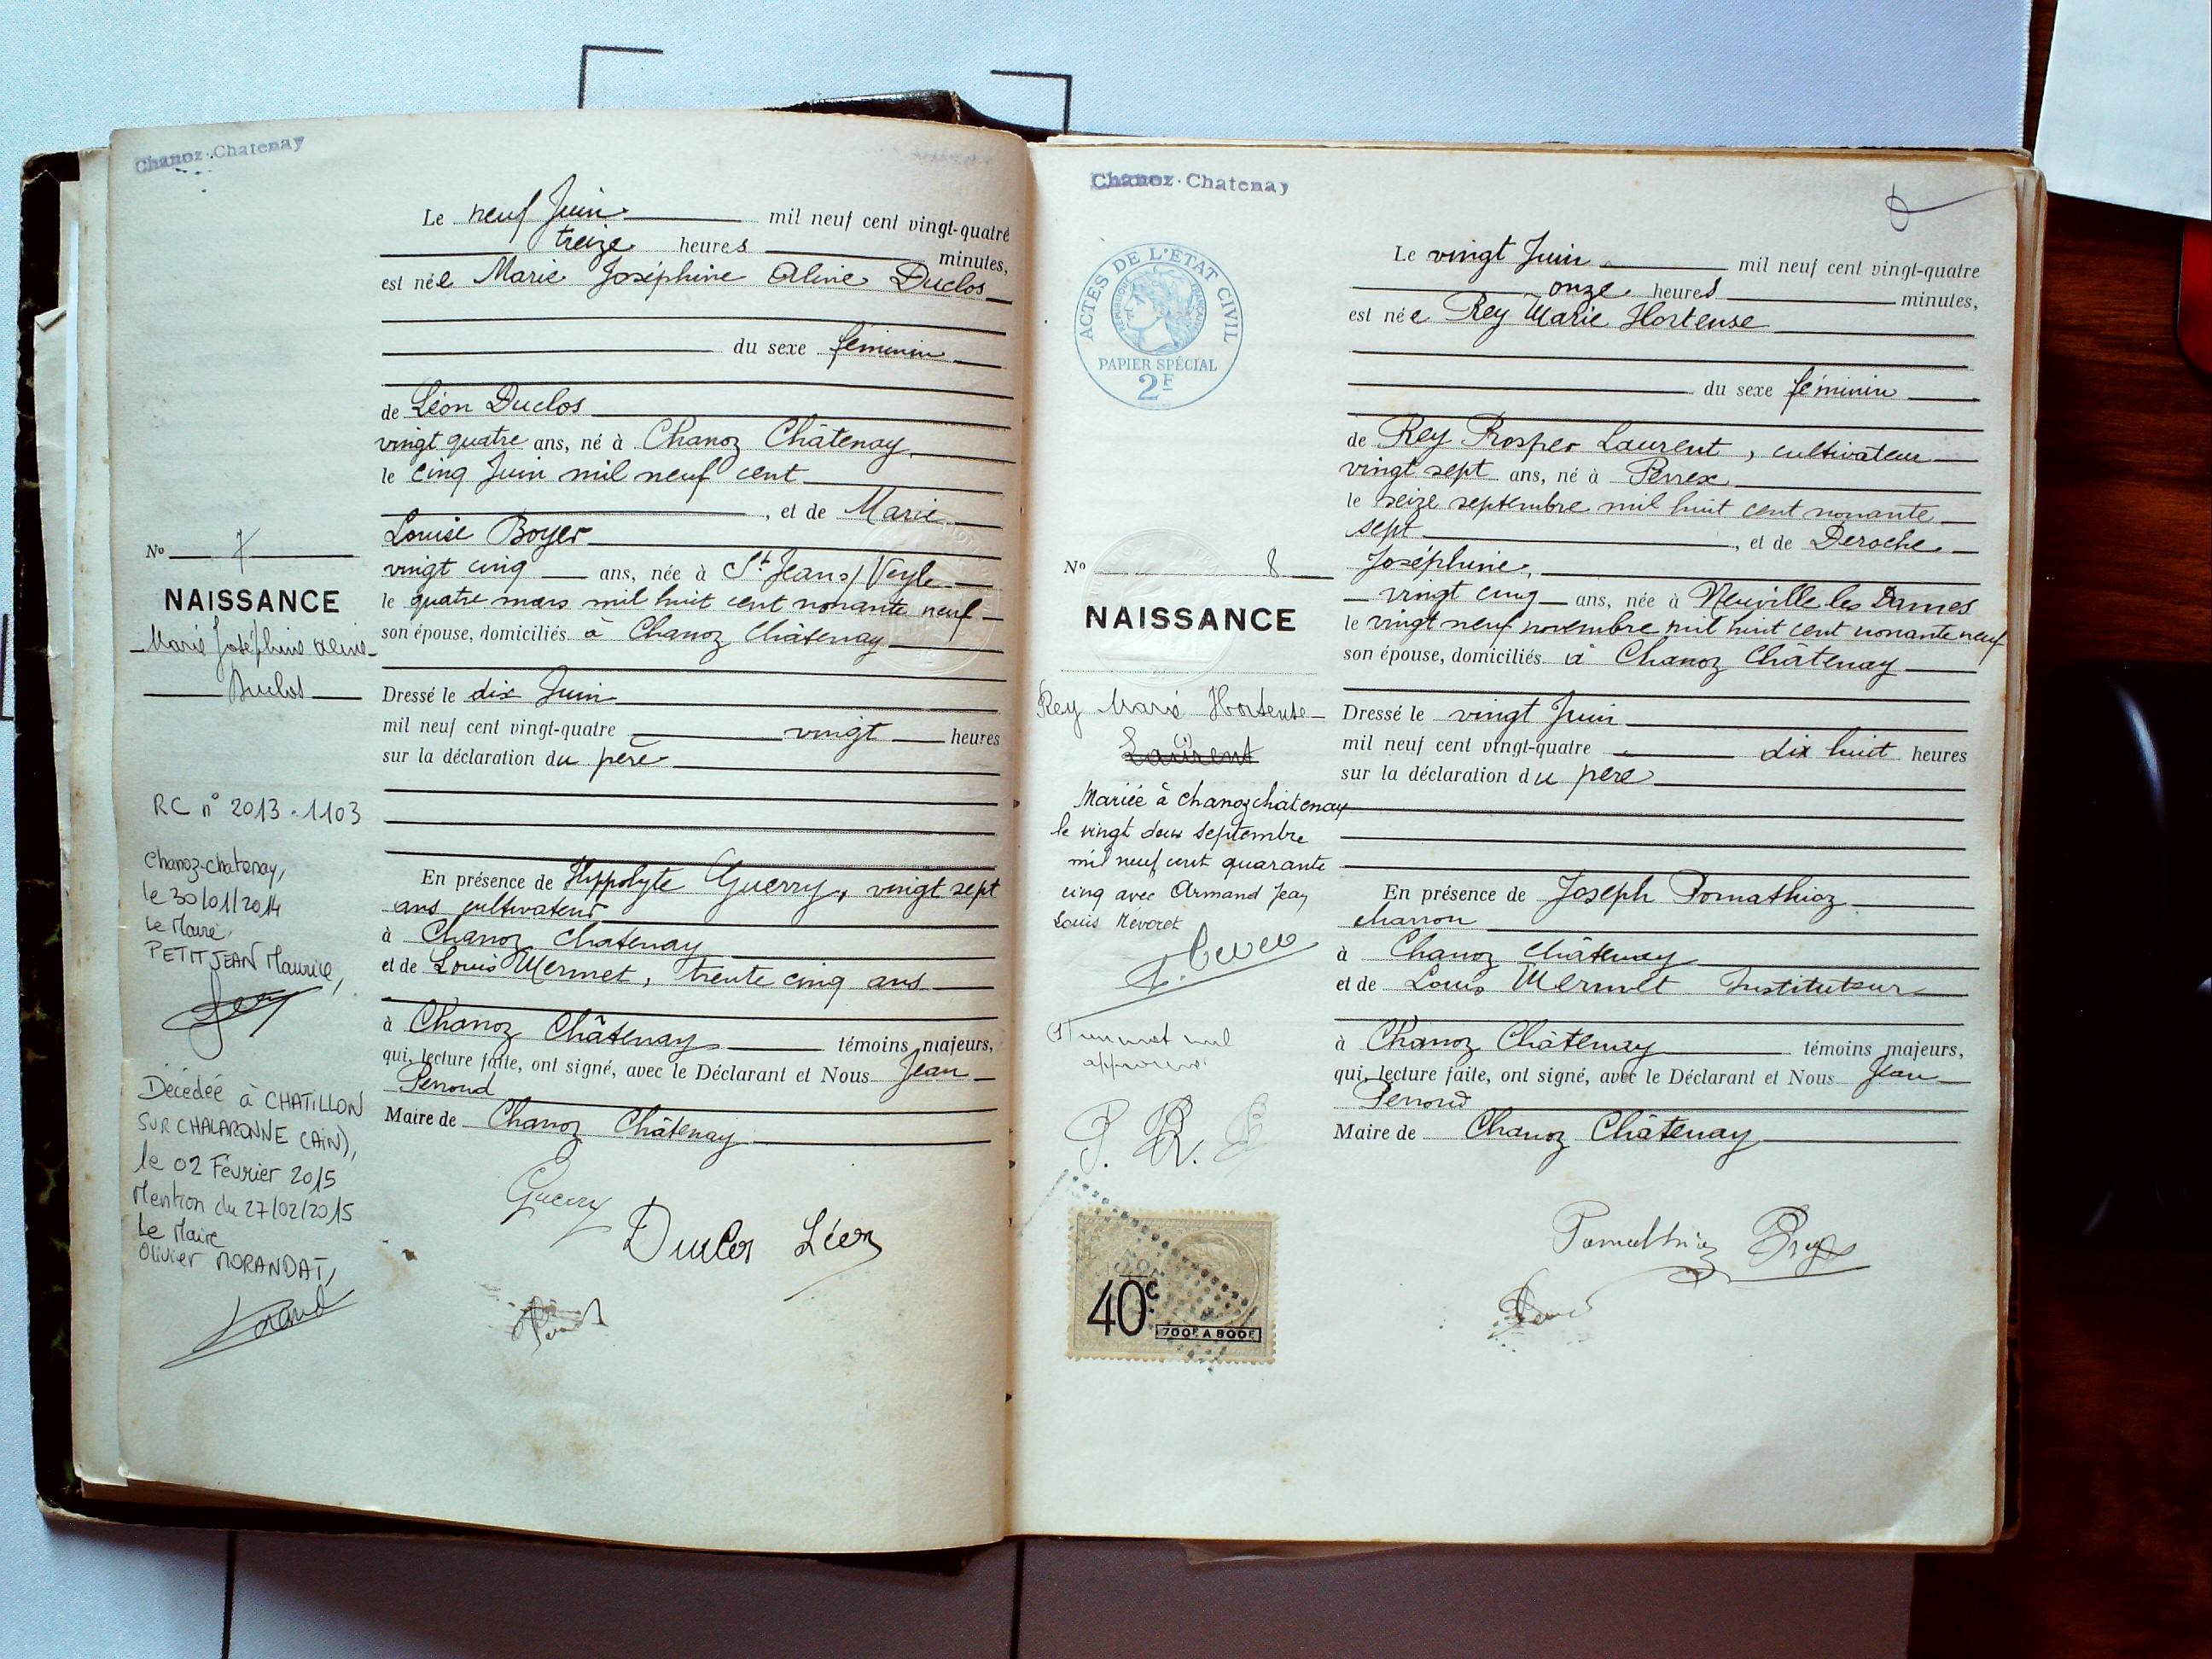 Chanoz-Chatenay
Le neuf Juin mil neuf cent vingt-quatre
treize heures minutes,
est née Marie Joséphine Aline Duclos
du sexe féminin
de Léon Duclos
vingt quatre ans, né à Chanoz Châtenay
le cinq Juin mil neuf cent
, et de Marie
Louise Boyer
vingt cinq ans, née à St Jean s/ Veyle
le quatre mars mil huit cent nonante neuf
son épouse, domiciliés à Chanoz Châtenay
Dressé le dix Juin
mil neuf cent vingt-quatre vingt heures
sur la déclaration du père
En présence de Hippolyte Guerry, vingt sept
ans cultivateur
à Chanoz Chatenay
et de Louis Mermet, trente cinq ans
à Chanoz Châtenay témoins majeurs,
qui, lecture faite, ont signé, avec le Déclarant et Nous Jean
Perroud
Maire de Chanoz Châtenay
Guerry
Duclos Léon
No 7
NAISSANCE
Marie Joséphine Aline
Duclos
RC n° 2013-1103
Chanoz-Chatenay,
le 30/01/2014
Le Maire,
PETITJEAN Maurice,
Décédée à CHATILLON
SUR CHALARONNE (AIN),
le 02 Février 2015
Mention du 27/02/2015
Le Maire
Olivier MORANDAT,
Chanoz-Chatenay
ACTES DE L'ÉTAT CIVIL
RÉPUBLIQUE FRANÇAISE
PAPIER SPÉCIAL
2F
Le vingt Juin mil neuf cent vingt-quatre
onze heures minutes,
est née Rey Marie Hortense
du sexe féminin
de Rey Prosper Laurent, cultivateur
vingt sept ans, né à Perrex
le seize septembre mil huit cent nonante
sept , et de Deroche
Joséphine,
vingt cinq ans, née à Neuville les Dames
le vingt neuf novembre mil huit cent nonante neuf
son épouse, domiciliés à Chanoz Châtenay
Dressé le vingt Juin
mil neuf cent vingt-quatre dix huit heures
sur la déclaration du père
En présence de Joseph Pomathioz
charron
à Chanoz Châtenay
et de Louis Mermet Instituteur
à Chanoz Châtenay témoins majeurs,
qui, lecture faite, ont signé, avec le Déclarant et Nous Jean
Perroud
Maire de Chanoz Châtenay
Pomathioz Rey
No 8
NAISSANCE
Rey Marie Hortense
Laurent
Mariée à Chanoz châtenay
le vingt deux septembre
mil neuf cent quarante
cinq avec Armand Jean
Louis Nevoret
(1) un mot nul
approuvé
P. R.
40c
700F A 800F